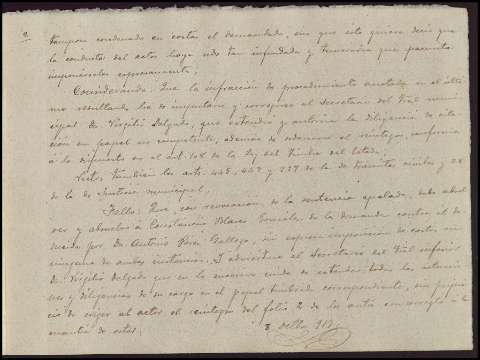 2
tampoco condenado en costas el demandado, sin que esto quiera decir que
la conducta del actor haya sido tan infundada y temeraria que permita
imponérselas expresamente;
Considerando: Que la infracción de procedimiento anotada en el últi-
mo resultando, ha de imputarse y corregirse al Secretario del Tral muni-
cipal D. Virgilio Delgado, que extendió y autorizó la diligencia de cita-
ción en papel no competente, además de ordenarse el reintegro, conforme
a lo dispuesto en el art. 108 de la ley del Timbre del Estado.
Vistos también los arts. 448, 449 y 227 de la de trámites civiles y 28
de la de Justicia municipal,
Fallo: Que, con revocación de la sentencia apelada, debo absol-
ver y absuelvo a Constantino Blanco González de la demanda contra él de-
ducida por D. Antonio Pérez Gallego, sin expresa imposición de costas en
ninguna de ambas instancias. Y adviértase al Secretario del Tral inferior
D. Virgilio Delgado que en lo sucesivo cuide de extender todas las actuacio-
nes y diligencias de su cargo en el papel timbrado correspondiente, sin perjui-
cio de exigir al actor el reintegro del folio 2 de los autos con arreglo a la
cuantía de estos.
8 Octbre